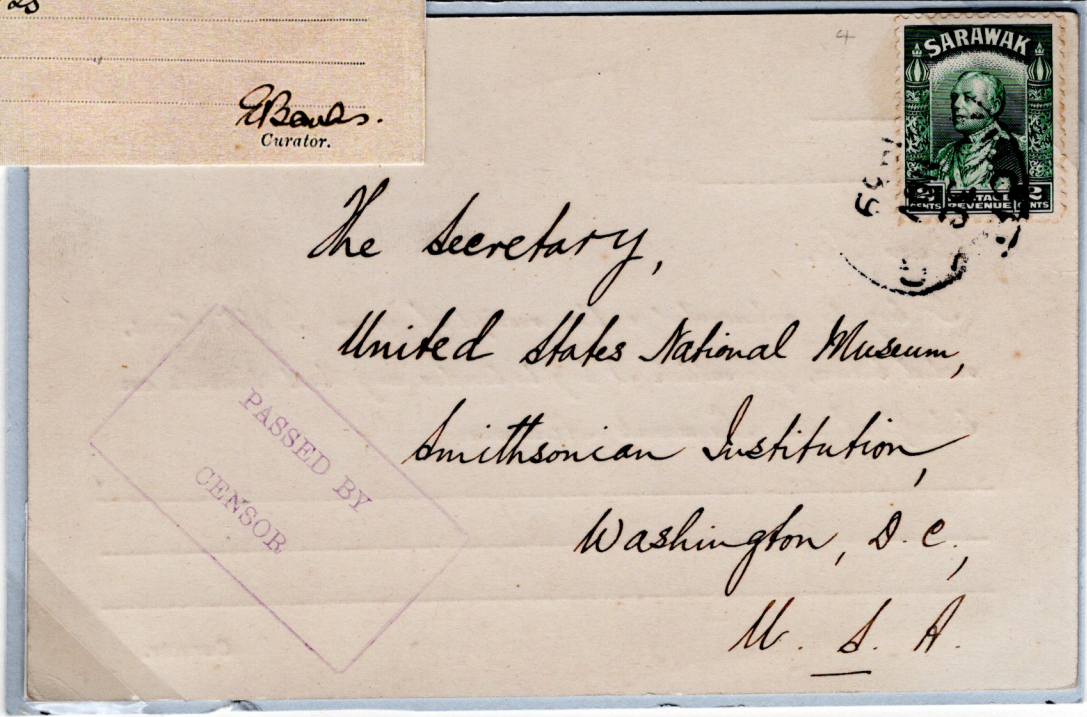 E Banks.
Curator.
4
SARAWAK
2 CENTS POSTAGE REVENUE 2 CENTS
The Secretary,
United States National Museum,
Smithsonian Institution,
Washington, D.C.,
U. S. A.
PASSED BY
CENSOR